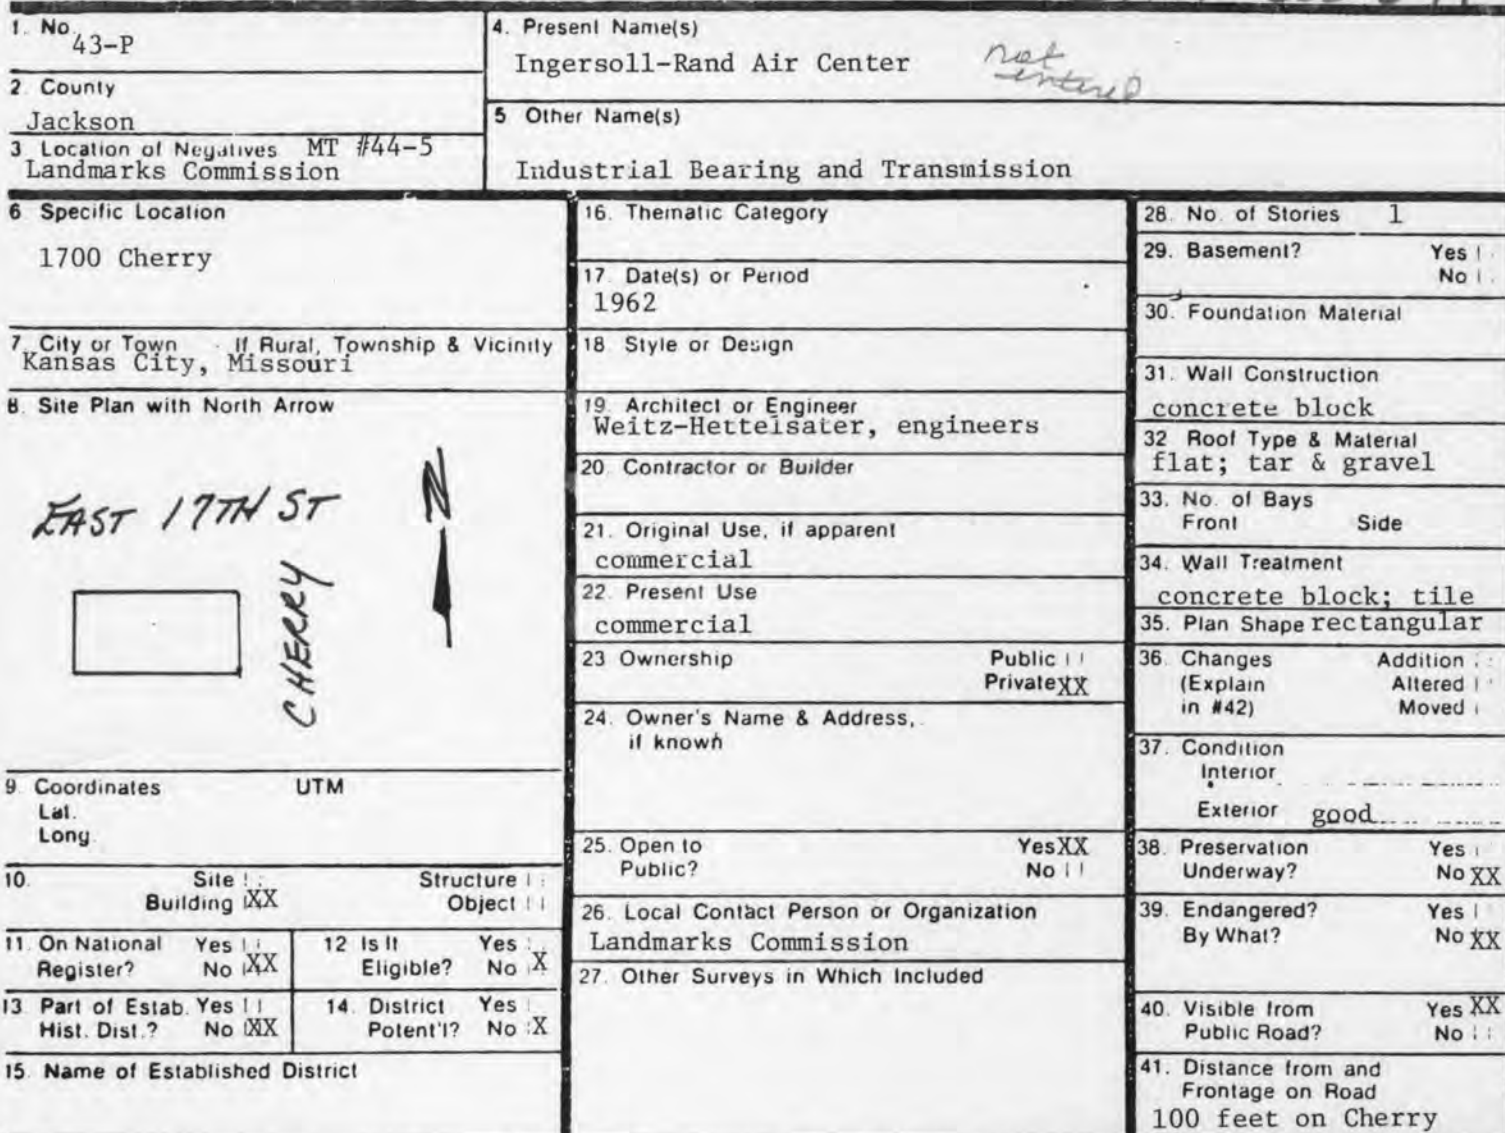 1. No. 43-P
2. County
Jackson
3 Location of Negatives MT #44-5
Landmarks Commission
4. Present Name(s)
Ingersoll-Rand Air Center
not
entered
5 Other Name(s)
Industrial Bearing and Transmission
6. Specific Location
1700 Cherry
7. City or Town If Rural, Township & Vicinity
Kansas City, Missouri
8. Site Plan with North Arrow
EAST 17TH ST
N
CHERRY
9. Coordinates UTM
Lat.
Long.
10. Site Structure
Building XX Object
11. On National Yes
Register? No XX
12 Is It Yes
Eligible? No X
13. Part of Estab. Yes
Hist. Dist.? No XX
14. District Yes
Potent'l? No X
15. Name of Established District
16. Thematic Category
17. Date(s) or Period
1962
18. Style or Design
19. Architect or Engineer
Weitz-Hettelsater, engineers
20. Contractor or Builder
21. Original Use, if apparent
commercial
22. Present Use
commercial
23 Ownership Public
Private XX
24. Owner's Name & Address,
if known
25. Open to Yes XX
Public? No
26. Local Contact Person or Organization
Landmarks Commission
27. Other Surveys in Which Included
28. No. of Stories 1
29. Basement? Yes
No
30. Foundation Material
31. Wall Construction
concrete block
32 Roof Type & Material
flat; tar & gravel
33. No. of Bays
Front Side
34. Wall Treatment
concrete block; tile
35. Plan Shape rectangular
36. Changes Addition
(Explain Altered
in #42) Moved
37. Condition
Interior
Exterior good
38. Preservation Yes
Underway? No XX
39. Endangered? Yes
By What? No XX
40. Visible from Yes XX
Public Road? No
41. Distance from and
Frontage on Road
100 feet on Cherry